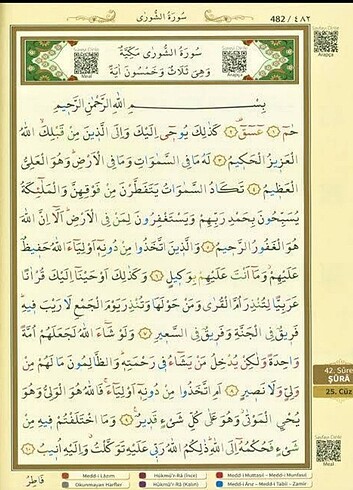 سُورَةُ الشُّورٰى
482 / ٤٨٢
سُورَةُ الشُّورٰى مَكِّيَّةٌ
وَهِىَ ثَلَاثٌ وَخَمْسُونَ اٰيَةً
Meal
Arapça
بِسْمِ اللّٰهِ الرَّحْمٰنِ الرَّحِيمِ
حٰمٓ ﴿١﴾ عٓسٓقٓ ﴿٢﴾ كَذٰلِكَ يُوحٓى اِلَيْكَ وَاِلَى الَّذِينَ مِنْ قَبْلِكَ اللّٰهُ
الْعَزِيزُ الْحَكِيمُ ﴿٣﴾ لَهُ مَا فِى السَّمٰوَاتِ وَمَا فِى الْاَرْضِ وَهُوَ الْعَلِىُّ
الْعَظِيمُ ﴿٤﴾ تَكَادُ السَّمٰوَاتُ يَتَفَطَّرْنَ مِنْ فَوْقِهِنَّ وَالْمَلٰٓئِكَةُ
يُسَبِّحُونَ بِحَمْدِ رَبِّهِمْ وَيَسْتَغْفِرُونَ لِمَنْ فِى الْاَرْضِ اَلَٓا اِنَّ اللّٰهَ
هُوَ الْغَفُورُ الرَّحِيمُ ﴿٥﴾ وَالَّذِينَ اتَّخَذُوا مِنْ دُونِهٓ اَوْلِيَٓاءَ اللّٰهُ حَفِيظٌ
عَلَيْهِمْ وَمَٓا اَنْتَ عَلَيْهِمْ بِوَكِيلٍ ﴿٦﴾ وَكَذٰلِكَ اَوْحَيْنَٓا اِلَيْكَ قُرْاٰنًا
عَرَبِيًّا لِتُنْذِرَ اُمَّ الْقُرٰى وَمَنْ حَوْلَهَا وَتُنْذِرَ يَوْمَ الْجَمْعِ لَا رَيْبَ فِيهِ
فَرِيقٌ فِى الْجَنَّةِ وَفَرِيقٌ فِى السَّعِيرِ ﴿٧﴾ وَلَوْ شَٓاءَ اللّٰهُ لَجَعَلَهُمْ اُمَّةً
وَاحِدَةً وَلٰكِنْ يُدْخِلُ مَنْ يَشَٓاءُ فِى رَحْمَتِهٖ وَالظَّالِمُونَ مَا لَهُمْ مِنْ
وَلِىٍّ وَلَا نَصِيرٍ ﴿٨﴾ اَمِ اتَّخَذُوا مِنْ دُونِهٓ اَوْلِيَٓاءَ فَاللّٰهُ هُوَ الْوَلِىُّ وَهُوَ
يُحْيِى الْمَوْتٰى وَهُوَ عَلٰى كُلِّ شَىْءٍ قَدِيرٌ ﴿٩﴾ وَمَا اخْتَلَفْتُمْ فِيهِ مِنْ
شَىْءٍ فَحُكْمُهُٓ اِلَى اللّٰهِ ذٰلِكُمُ اللّٰهُ رَبِّى عَلَيْهِ تَوَكَّلْتُ وَاِلَيْهِ اُنِيبُ ﴿١٠﴾
42. Sûre
ŞÛRÂ
25. Cüz
Meal
فَاطِرُ
Medd-i Lâzım
Hükmü'r-Râ (İnce)
Medd-i Muttasıl - Medd-i Munfasıl
Okunmayan Harfler
Hükmü'r-Râ (Kalın)
Medd-i Ârız - Medd-i Tabiî - Zamir